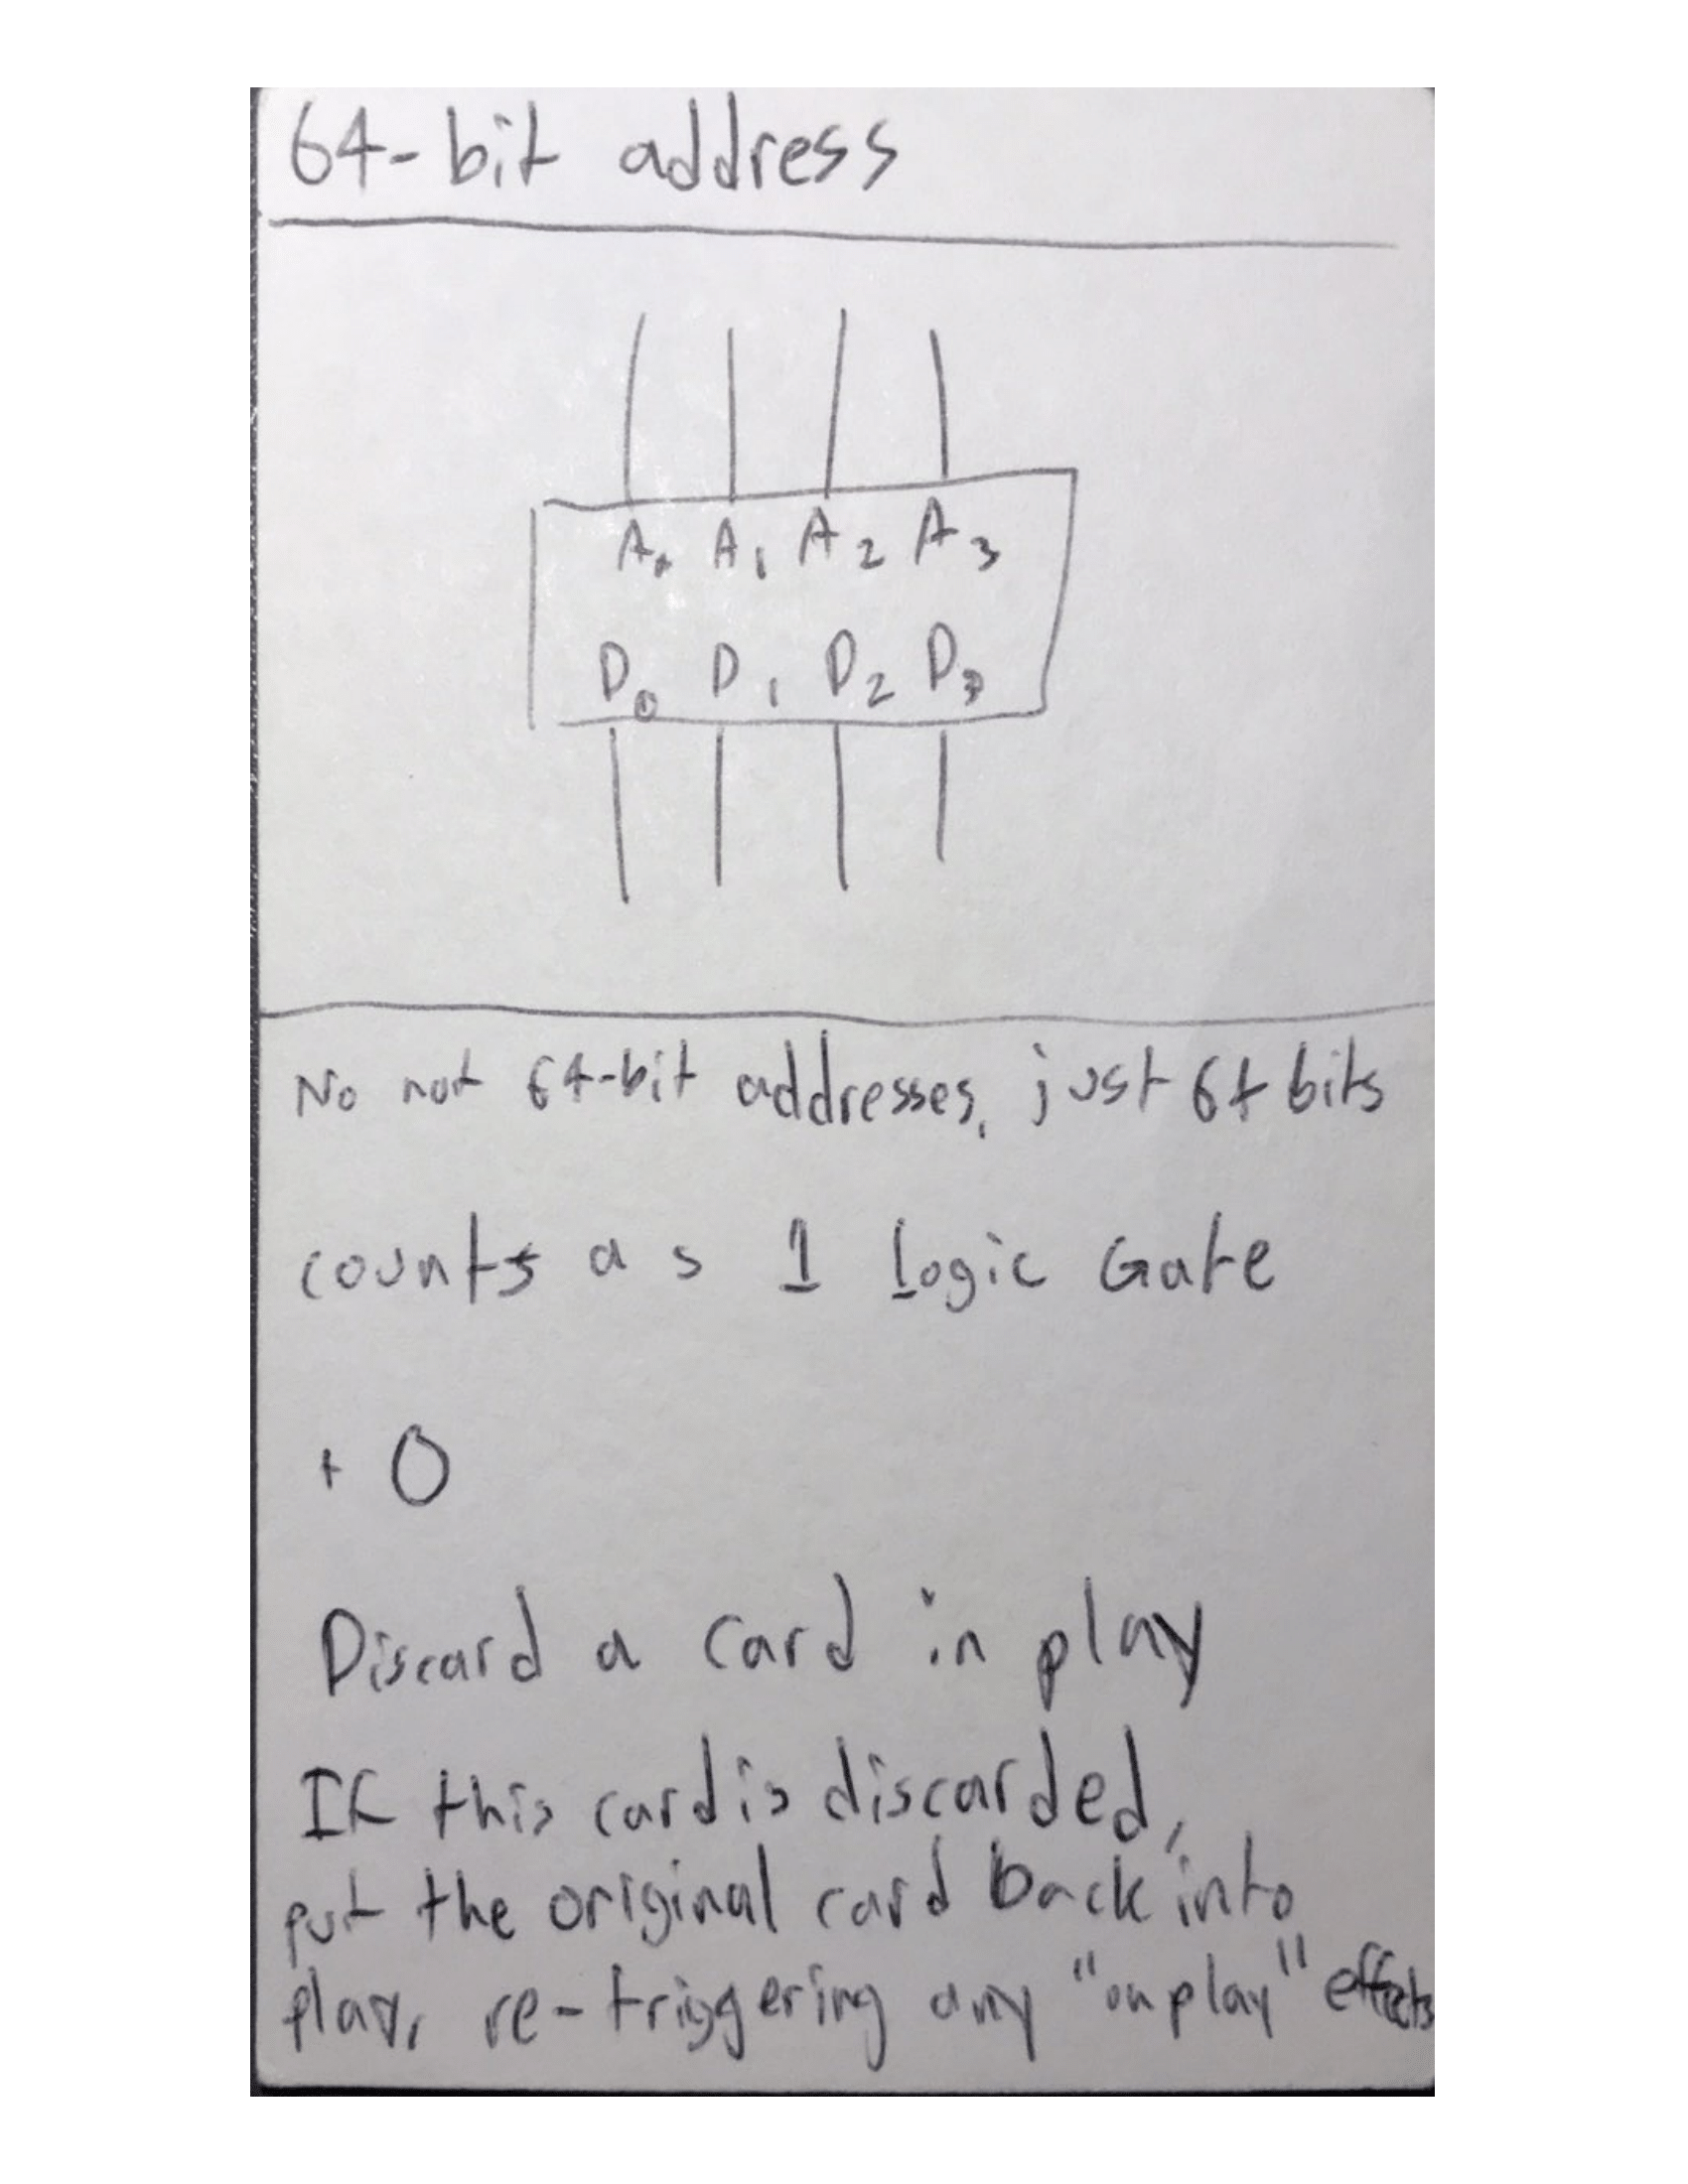 64-bit address
A0 A1 A2 A3
D0 D1 D2 D3
No not 64-bit addresses, just 64 bits
counts as 1 Logic Gate
+ 0
Discard a card in play
If this card is discarded,
put the original card back into
play, re-triggering any "on play" effects